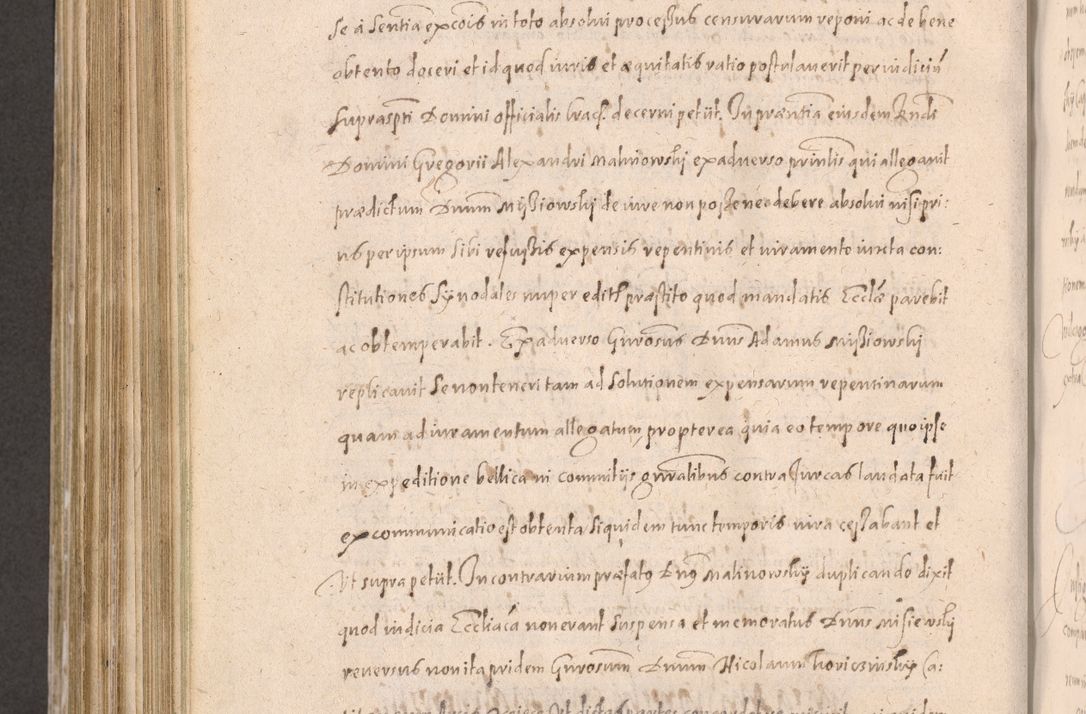 se a sentia excois in toto absolui processus censurarum reponi ac de bene
obtento doceri et id quod iuris et æquitatis ratio postulauerit per iudiciu
supraspti Domini officialis Crac. decerni petiit. In præntia eiusdem Rndi
Domini Gregorii Alexandri Malinowskj ex aduerso printis qui allegauit
prædictum Dnum Missiowskj de iure non posse nec debere absolui nisi pri:
us per ipsum sibi refusis expensis repentinis et iuramento iuxta con:
stitutiones Synodales nuper edit præstito quod mandatis Ecclæ parebit
ac obtemperabit. Ex aduerso Gnrosus Dnus Adamus Missiowskj
replicauit se non teneri tam ad solutionem expensarum repentinarum
quam ad iuramentum allegatum propterea quia eo tempore quo ipse
in expeditione bellica in comitijs gnralibus contra Turcas laudata fuit
excommunicatio est obtenta siquidem tunc temporis iura cessabant et
Ut supra petiit. In contrarium præfatq Dnq Malinowskij duplicando dixit
quod iudicia Eccliaca non erant suspensa et memoratus Dnus Misiewskj
reuersus non ita pridem Gnrosum Dnum Nicolaum (a: